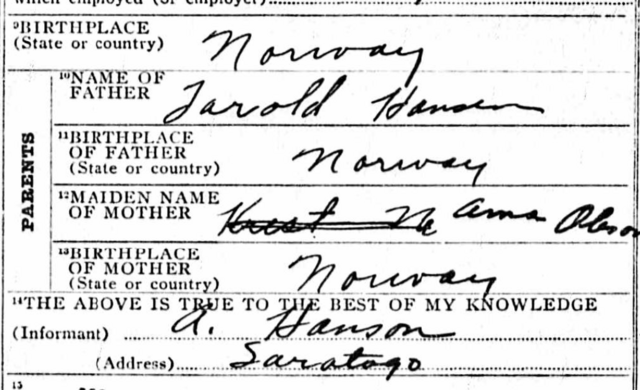 which employed (or employer)
⁹BIRTHPLACE
(State or country) Norway
PARENTS
¹⁰NAME OF
FATHER Jarold Hansen
¹¹BIRTHPLACE
OF FATHER
(State or country) Norway
¹²MAIDEN NAME
OF MOTHER Olson
¹³BIRTHPLACE
OF MOTHER
(State or country) Norway
¹⁴THE ABOVE IS TRUE TO THE BEST OF MY KNOWLEDGE
(Informant) A. Hanson
(Address) Saratogo
¹⁵